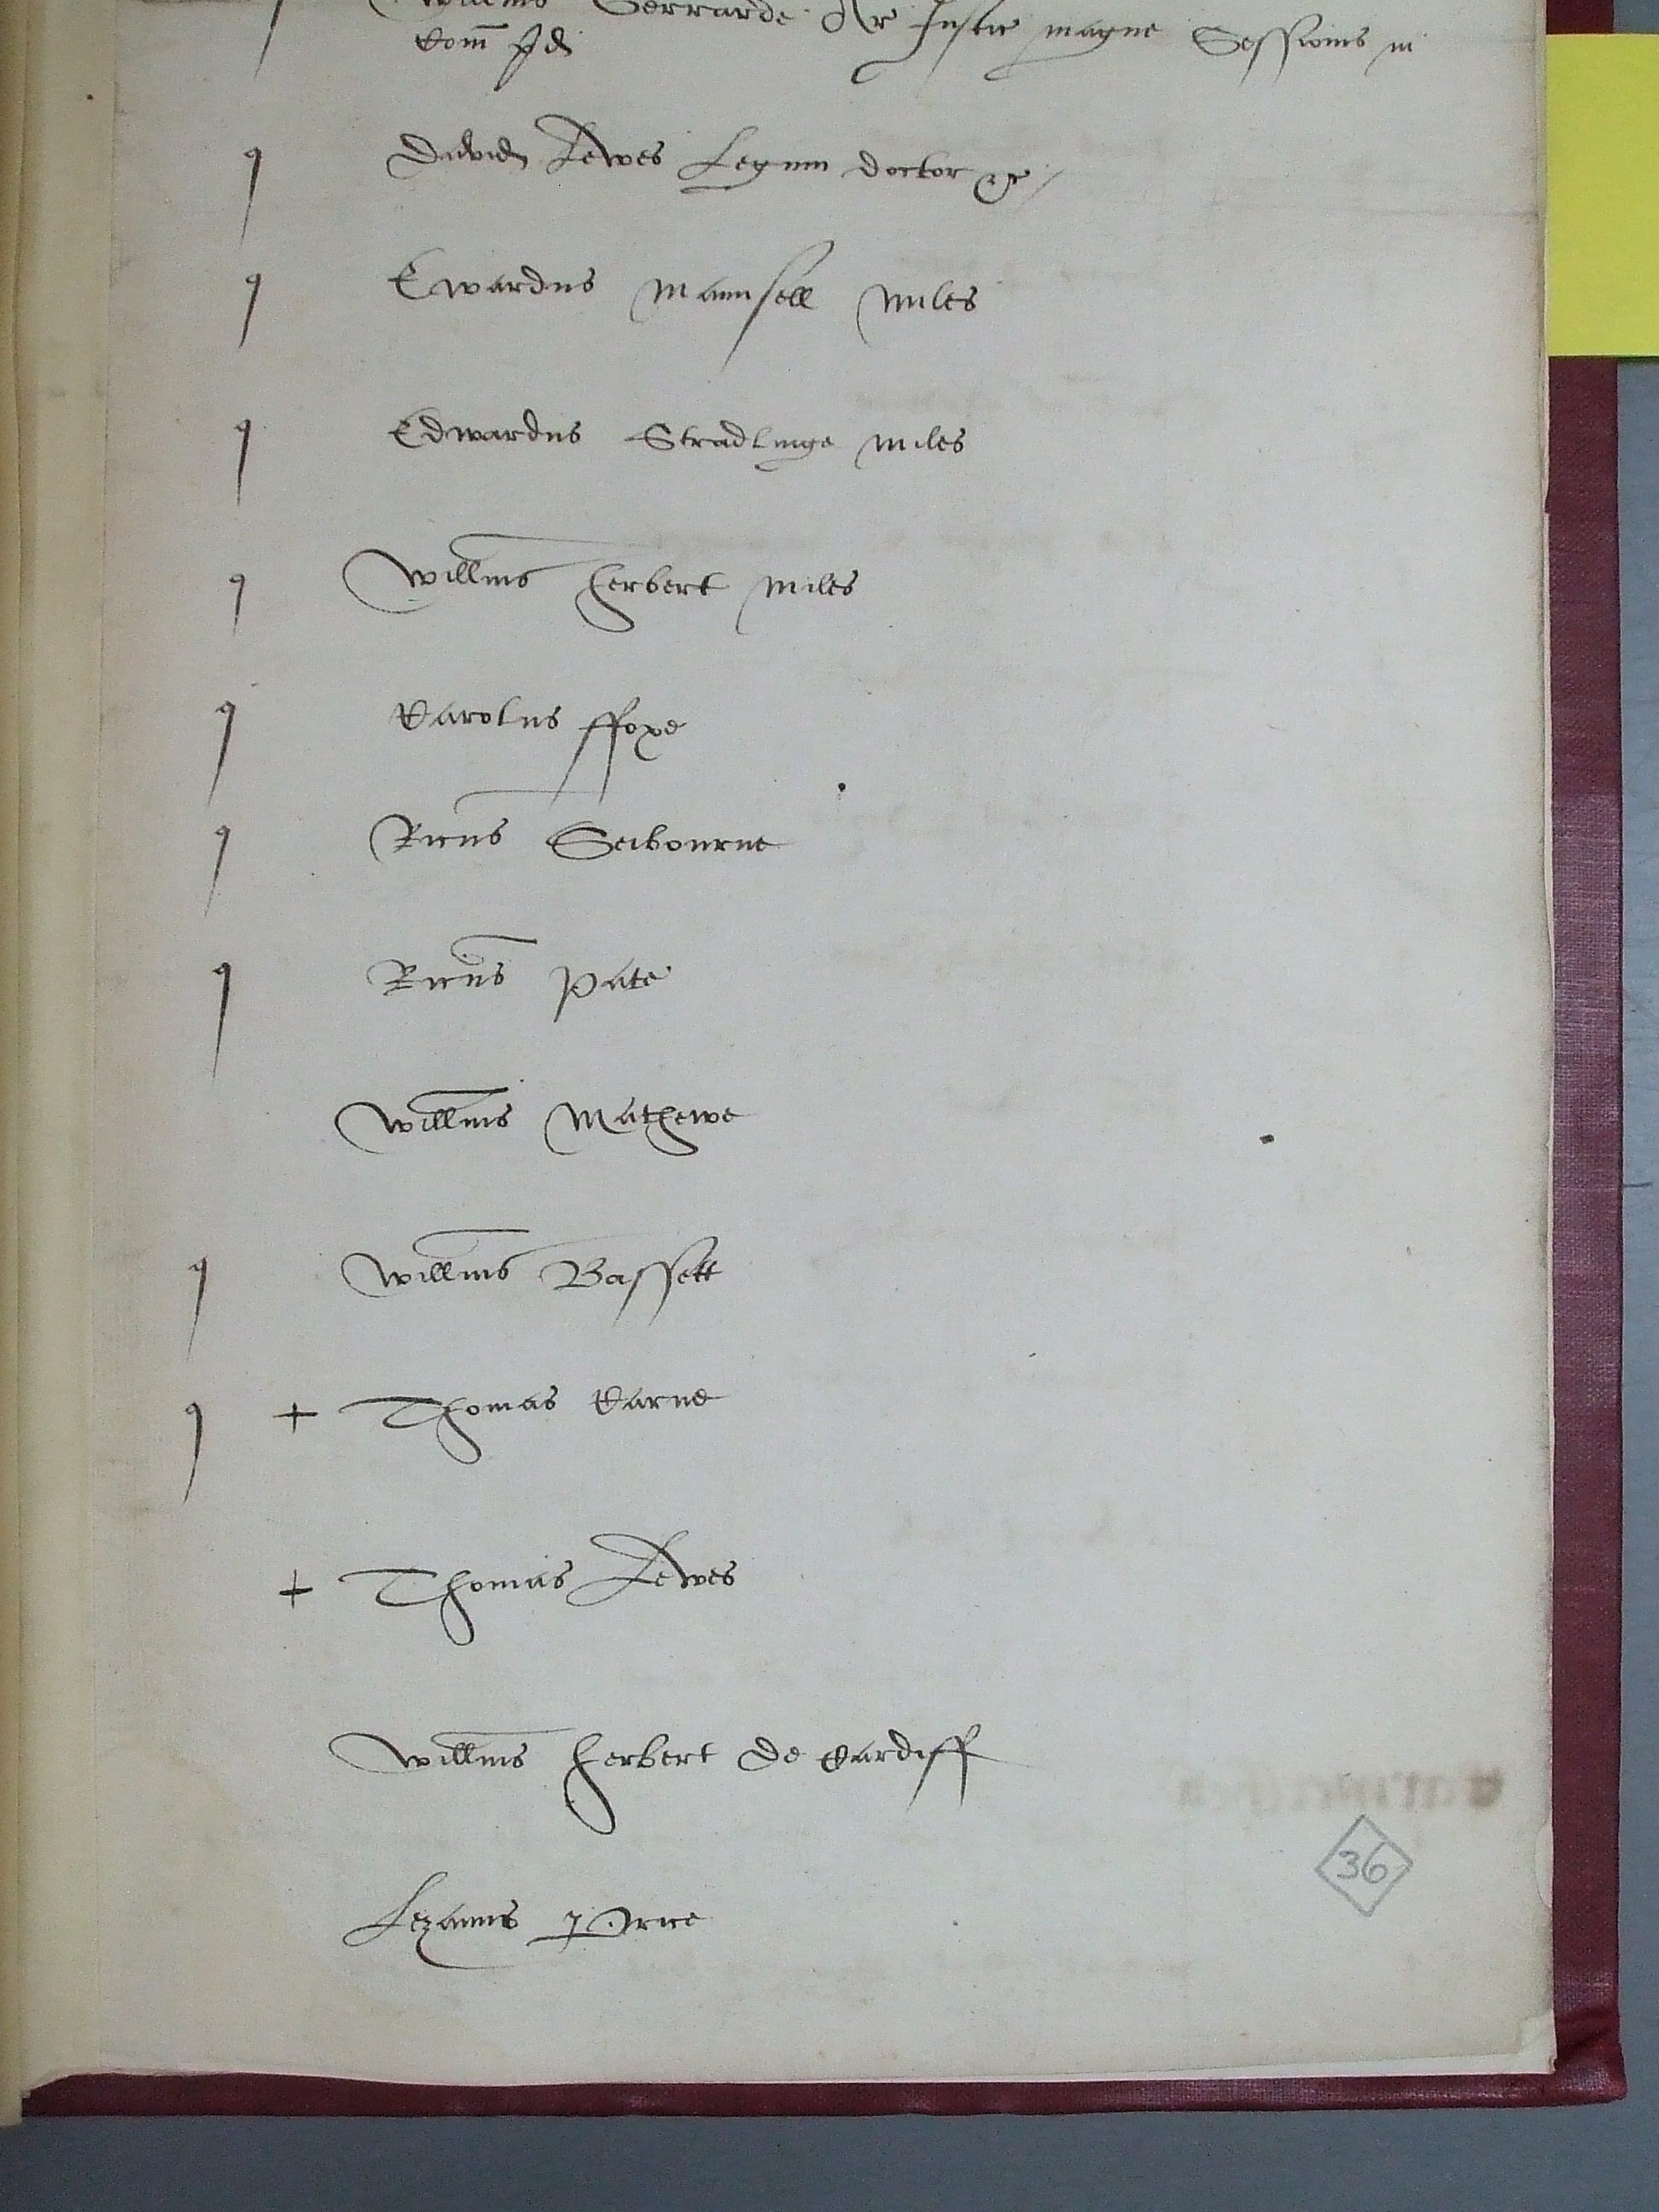 Willms Gerrarde Ar Justic magne Sessionis in
Com pd
q David Lewes Legum doctor &c
q Edwardus Maunsell miles
q Edwardus Stradlinge miles
q Willms herbert miles
q Carolus ffoxe
q Ricus Seibourne
q Ricus Pate
Willms Mathewe
q Willms Bassett
q + Thomas Carne
+ Thomas Lewes
Willms herbert de Cardiff
Lezanus ap Price
36